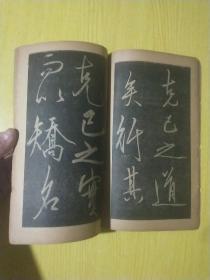 克己之道
矣其
克己之實
而以矯名